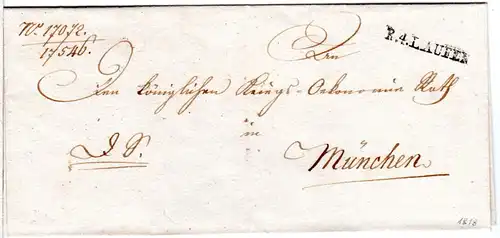 No. 17072.
17546.
R.4.LAUFEN
An
Den königlichen Kriegs-Oekonomie Rath
in
D. S.
München
1818